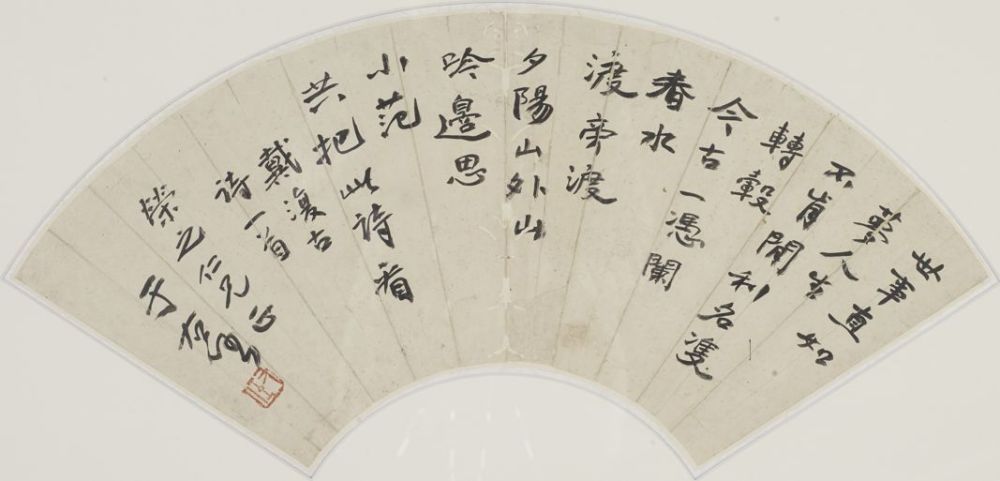 世事直如
夢人生
不肯閒利名雙
轉轂
今古一憑闌
春水
渡旁渡
夕陽山外山
吟邊思
小范
共把此詩看
戴復古
詩一首
榮之仁兄